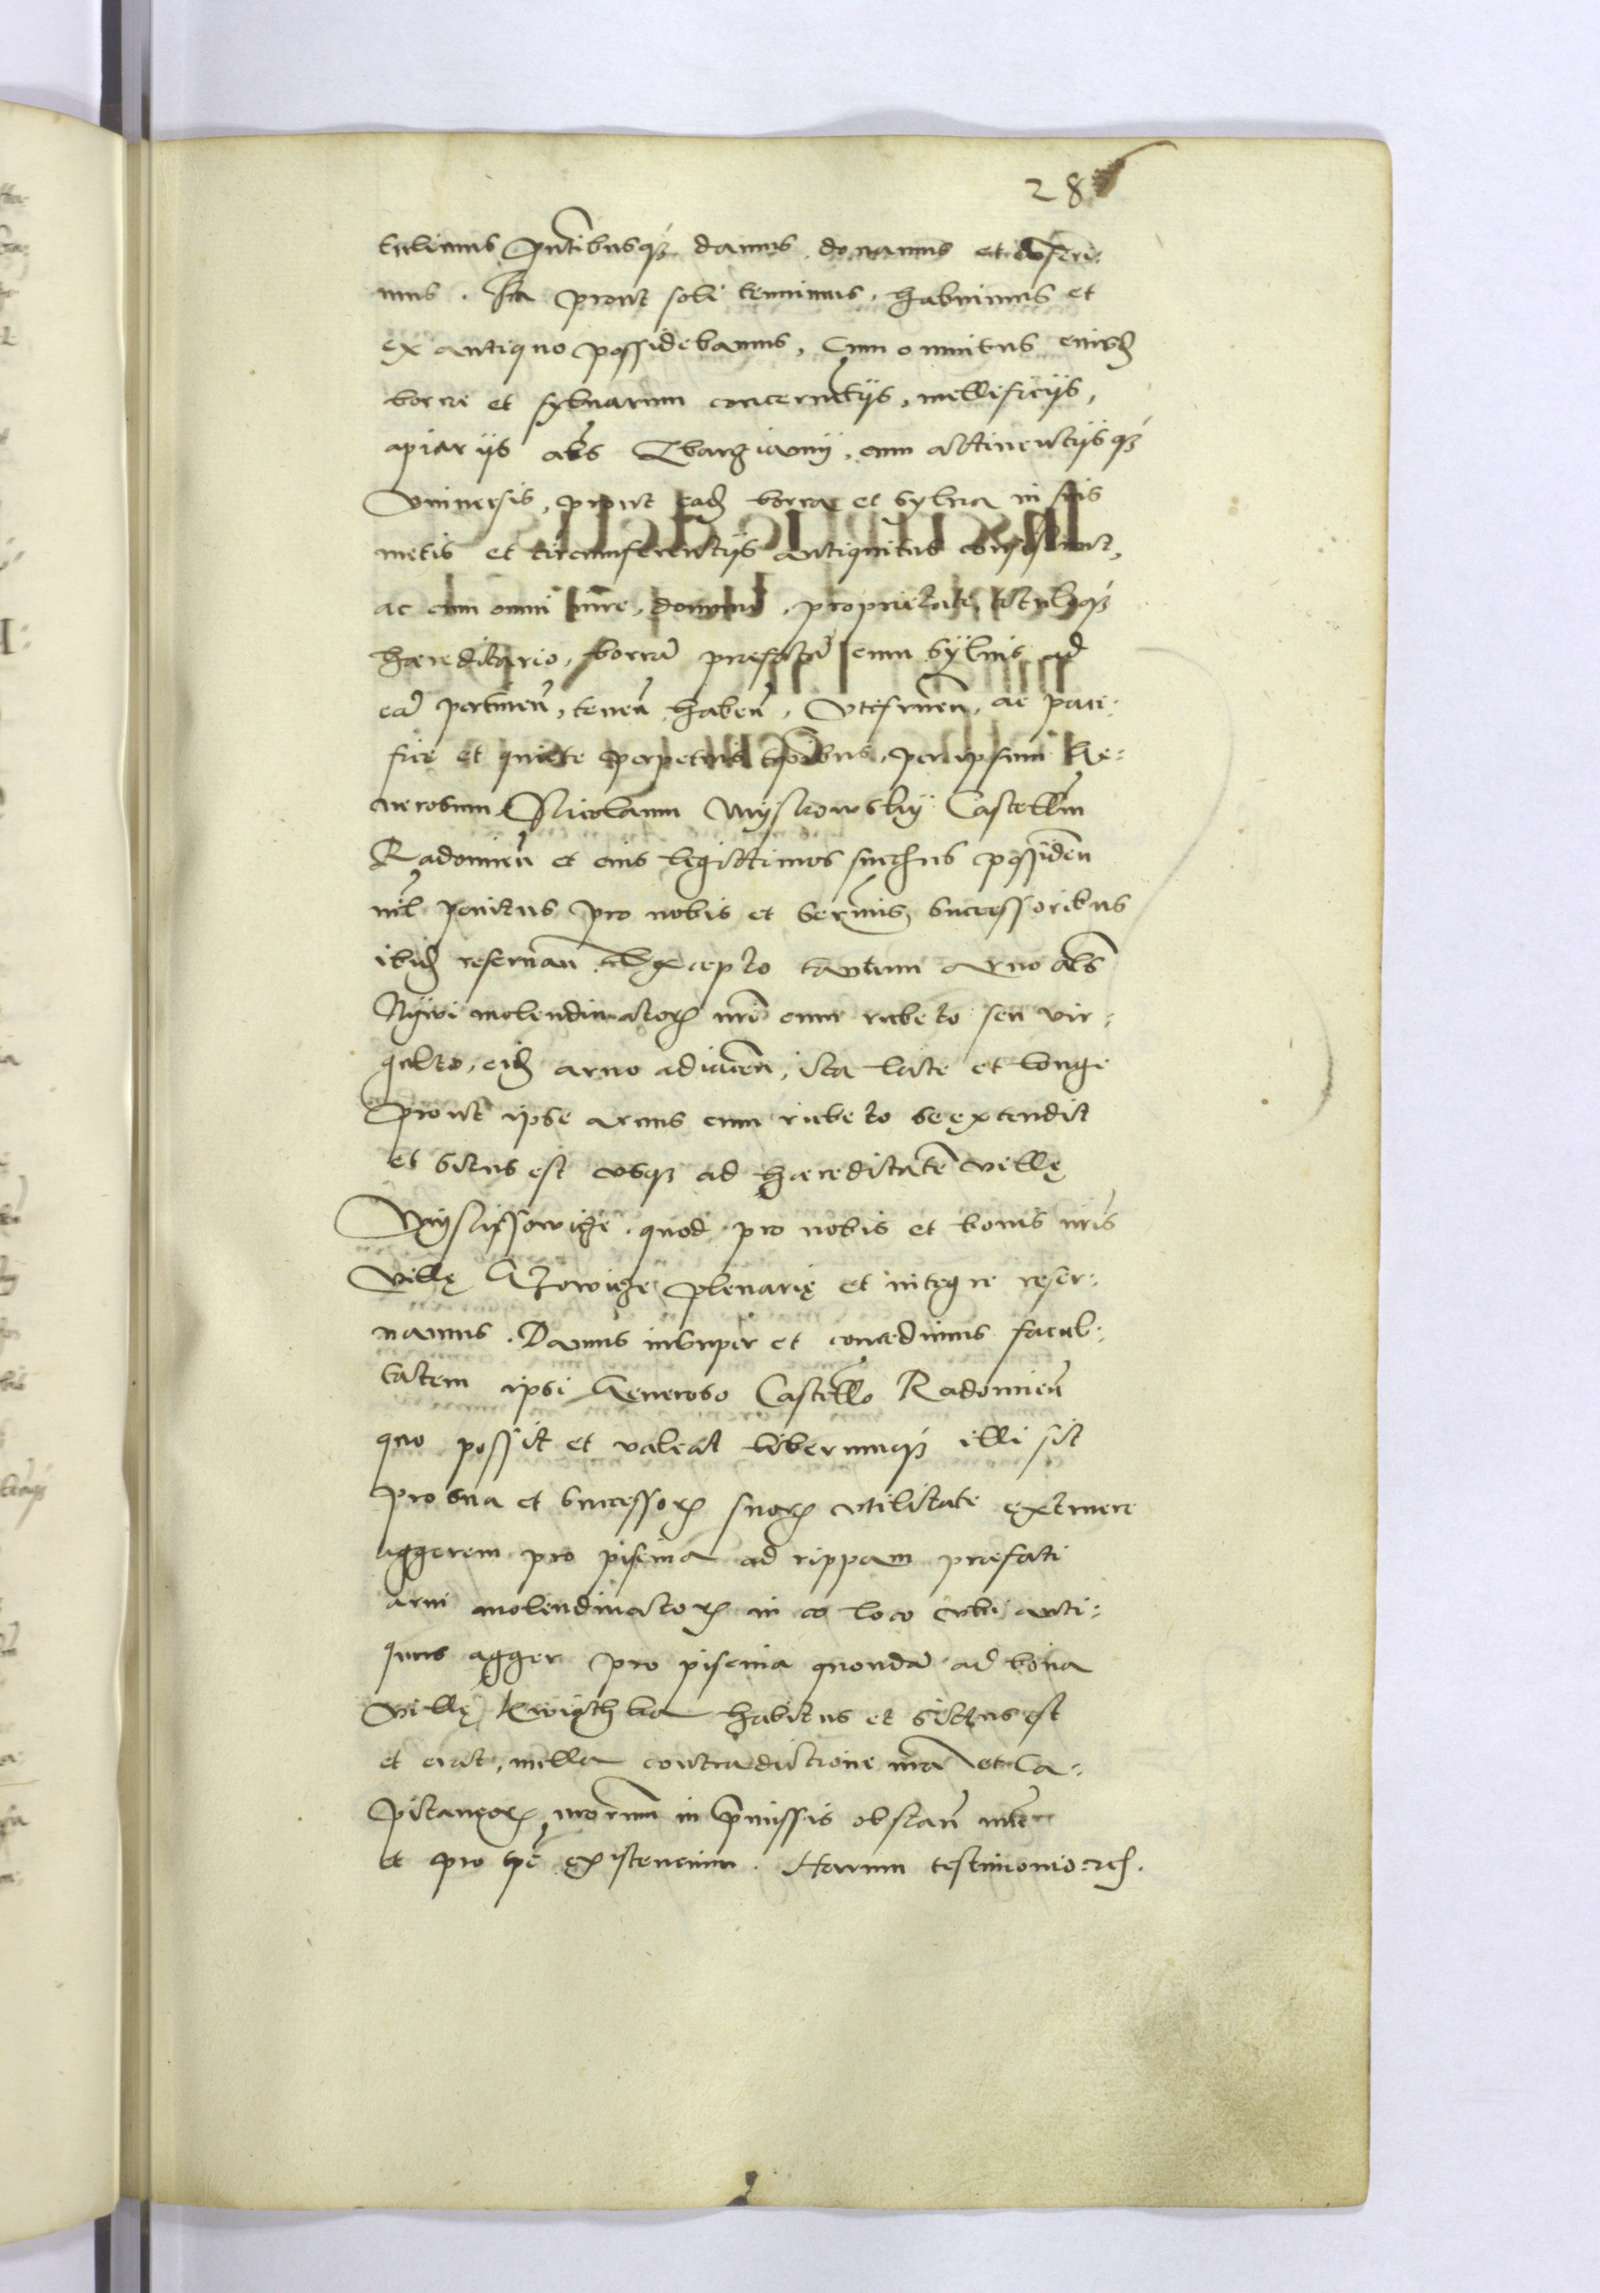 28
tulimus pntibusq₃ damus donamus et conferi:
mus. Ita prout soli tenuimus, habuimus et
ex antiquo possidebamus, cum omnibus eiusd
borre et sylvarum concernētijs, mellificijs,
apiarijs als Lbarzianij, cum attinentijsq₃
Universis, prout ead borra et sylva in suis
metis et circumferentijs antiquitus consistunt,
ac cum omni iure, dominio, proprietate, tituloq₃
haereditario, borrā praefatā cum sylvis ad
eā pertinen, tenen, haben, Utifruen, ac paci:
fice et quiete perpetuis tporibus, per ipsum Ge:
nerosum Nicolaum Myskowskij Castellm
Radomien et eius legittimos succus possiden
nil penitus pro nobis et serenis successoribus
ibid reservan. Excepto tantum arvo als
Nijwi molendinator nri cum rubeto seu vir:
gulto, eid arvo adiacen, ita late et longe
prout ipse arvus cum rubeto se extendit
et situs est usq₃ ad haereditatē villę
Myslissowicze quod pro nobis et bonis nris
villę plenarię et integre reser:
vamus. Damus insuper et concedimus facul:
tatem ipsi Generoso Castello Radomien
quo possit et valeat liberumq₃ illi sit
pro sua et successor suor utilitate extruere
aggerem pro piscina ad rippam praefati
arvi molendinator in eo loco ubi anti:
quus agger pro piscina quondā ad bona
villę habitus et situs est
et erat, nulla contradictione nra et Ca:
pitaneor nrorum in pmissis obstan
et pro existencium. Harum testimonio